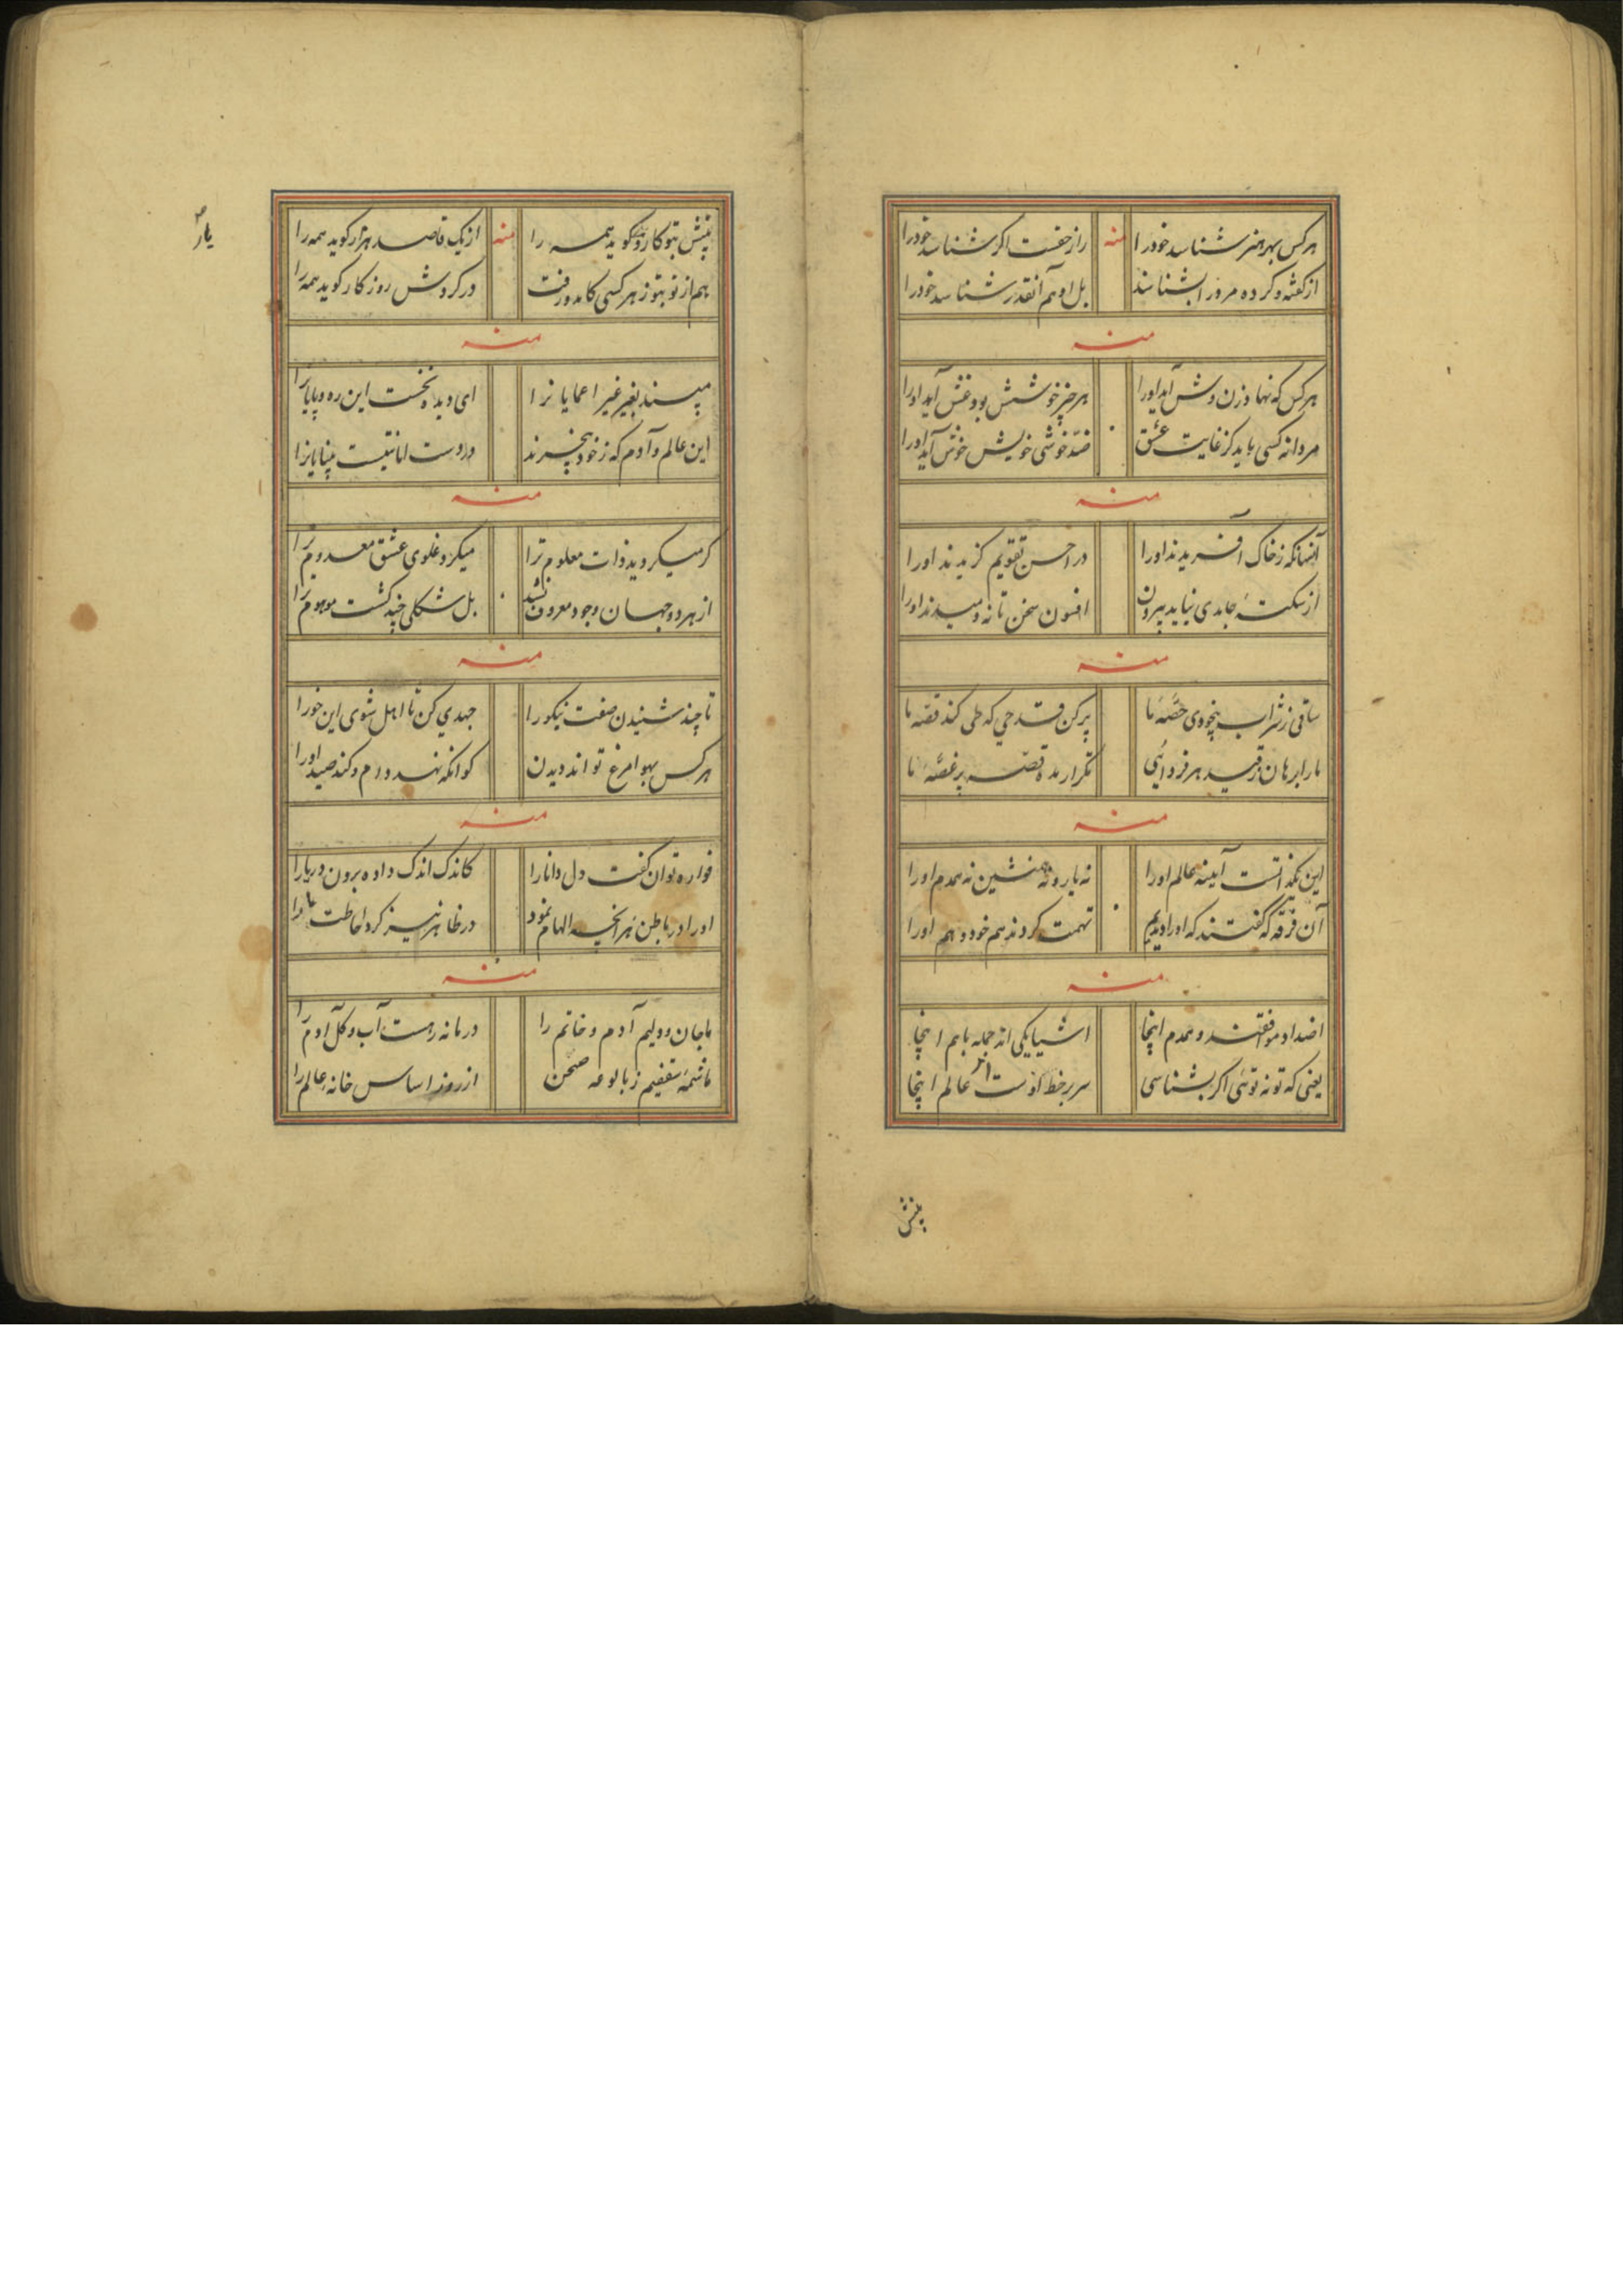 هر کس بهر هنر شناسد خود را منه راز خفیست اگر شناسد خود را
از گفته و کرده مرد را بشناسند بل او هم آنقدر شناسد خود را
منه
هر کس که نهاد زن وش آید او را هر چیز خوشش بود غنش آید او را
مردانه کسی باید کز غایت عشق ضد خوشی خویش خوش آید او را
منه
آنهانکه ز خاک آفریدند او را در احسن تقویم گزیدند او را
از سکتهٔ جامدی نیاید بیرون افسون سخن تا نه دمیدند او را
منه
ساقی ز شراب بیخودی حصهٔ ما پر کن قدحی که طی کند قصهٔ ما
ما را برهان ز قید هر فردائی تکرار مده قصهٔ پر غصهٔ ما
منه
این آینه عالم او را نه یار و نه همنشین نه همدم او را
آن فرقه که گفتند که او را دیدیم تهمت کردند هم خود و هم او را
منه
اضداد موافقند و همدم اینجا اشیا یکی اند جمله باهم اینجا
یعنی که تو نه توئی اگر بشناسی سر بر خط عالم اینجا
پیش
پیش تو کار و گوید همه را منه از یک قاصد هزار گوید همه را
هم از تو بتو ز هر کسی کامد و رفت در گردش روزگار گوید همه را
منه
مپسند بغیر غیر اعمایان را ای دیده نخست این ره و پایان را
این عالم و آدم که ز خود بیخبرند در دست امانتیست بینایان را
منه
گر میگروید ذات معلوم ترا میکرد غلوی عشق معدوم ترا
از هر دو جهان وجود معروف نشد بل شکلی چند گشت موهوم ترا
منه
تا چند شنیدن صفت نیکو را جهدی کن تا اهل شوی این خو را
هر کس بهوا مرغ تواند دیدن کو آنکه نهد دام و کند صید او را
منه
فواره توان گفت دل دانا را کاندک اندک داده برون دریا را
او را در باطن هر آنچه الهام نمود در ظاهر نیز کرد احاطت ما را
منه
ما جان و دلیم آدم و خاتم را در مانه رهست آب و گل آدم را
ما شمهٔ سقفیم ز بالوعه صحن از روزن اساس خانهٔ عالم را
یار